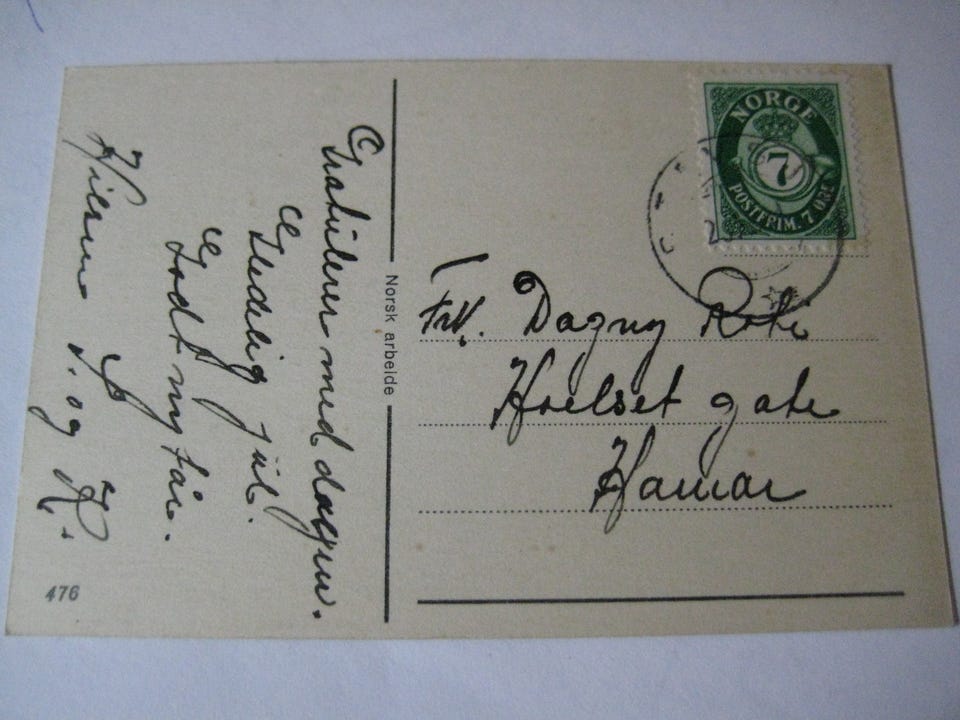 Gratulerer med dagen.
Gledelig jul.
Godt nyt år.
Hilsen
og K.
Norsk arbeide
476
NORGE
7
POSTFRIM. 7 ØRE
2
Frk. Dagny
Hoelset gate
Hamar